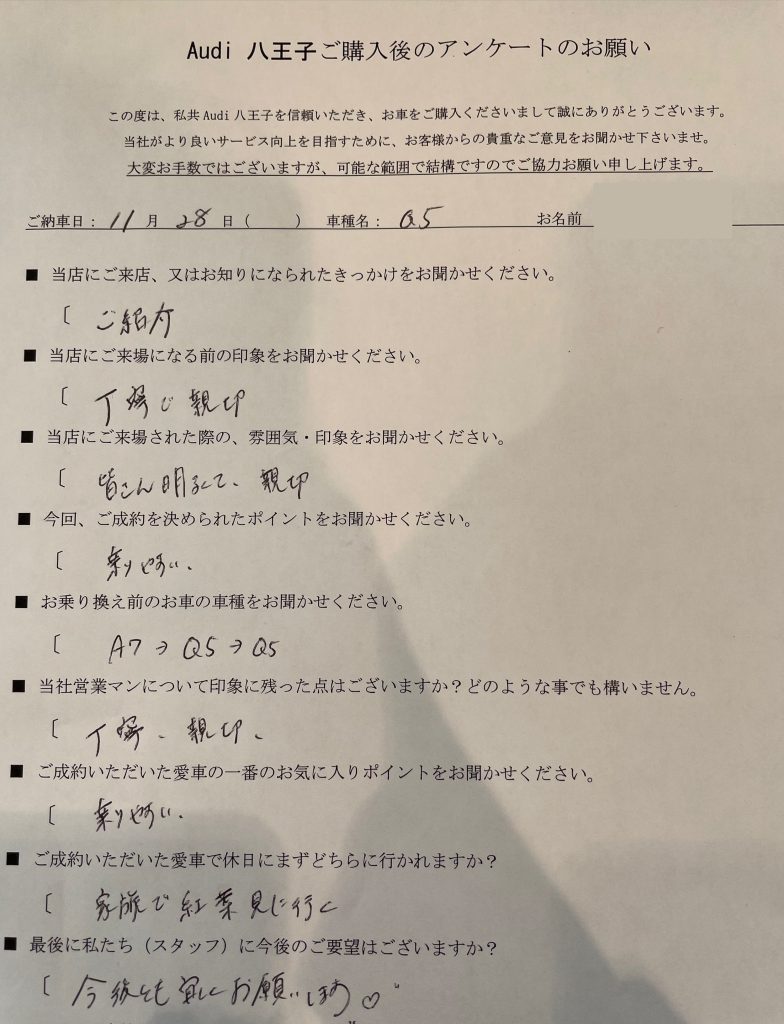 Audi 八王子ご購入後のアンケートのお願い
この度は、私共 Audi 八王子を信頼いただき、お車をご購入くださいまして誠にありがとうございます。
当社がより良いサービス向上を目指すために、お客様からの貴重なご意見をお聞かせ下さいませ。
大変お手数ではございますが、可能な範囲で結構ですのでご協力お願い申し上げます。
ご納車日： 11 月 28 日（　　） 車種名： Q5 お名前
■ 当店にご来店、又はお知りになられたきっかけをお聞かせください。
［ ご紹介
■ 当店にご来場になる前の印象をお聞かせください。
［ 丁寧で親切
■ 当店にご来場された際の、雰囲気・印象をお聞かせください。
［ 皆さん明るくて、親切
■ 今回、ご成約を決められたポイントをお聞かせください。
［ 乗りやすい、
■ お乗り換え前のお車の車種をお聞かせください。
［ A7→Q5→Q5
■ 当社営業マンについて印象に残った点はございますか？どのような事でも構いません。
［ 丁寧、親切、
■ ご成約いただいた愛車の一番のお気に入りポイントをお聞かせください。
［ 乗りやすい、
■ ご成約いただいた愛車で休日にまずどちらに行かれますか？
［ 家族で紅葉見に行く
■ 最後に私たち（スタッフ）に今後のご要望はございますか？
［ 今後とも宜しくお願いします♡